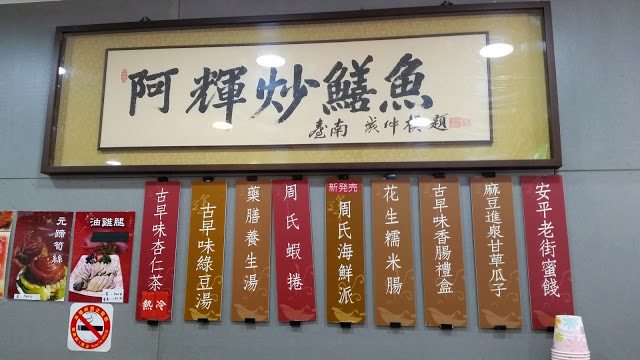 阿輝炒鱔魚
臺南
題
元蹄筍絲
油雞腿
古早味杏仁茶
熱冷
古早味綠豆湯
藥膳養生湯
周氏蝦捲
新発売
周氏海鮮派
花生糯米腸
古早味香腸禮盒
麻豆進泉甘草瓜子
安平老街蜜餞